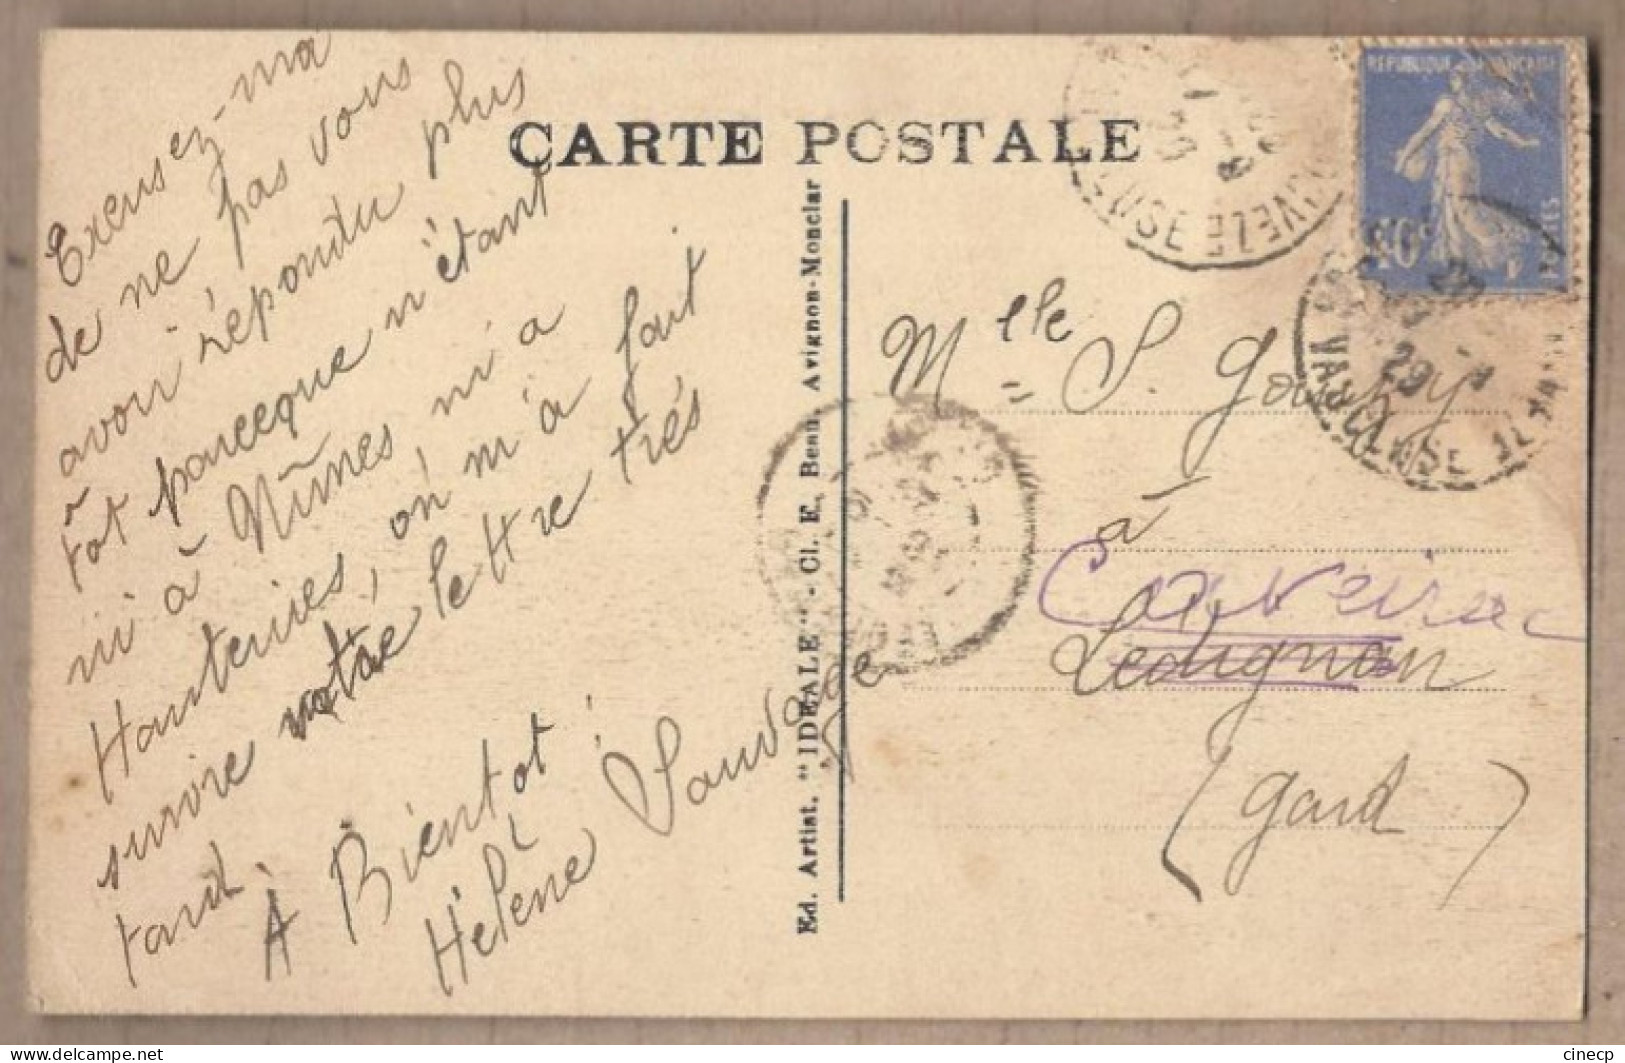 CARTE POSTALE
Excusez-ma
de ne pas vous
avoir répondu plus
tôt parceeque n'étant
ni à Nîmes, ni à
Hauterives, on m'à fait
suivre votre lettre très
tard.
À Bientôt !
Hélène Sauvage
Ed. Artist. "IDEALE" - Cl. E. Beau. Avignon-Monclar
REPUBLIQUE FRANÇAISE
POSTES
40c
VAUCLUSE
Mlle S. Gouby
à
Caveirac
Ledignan
(Gard)
delcampe.net
cinecp